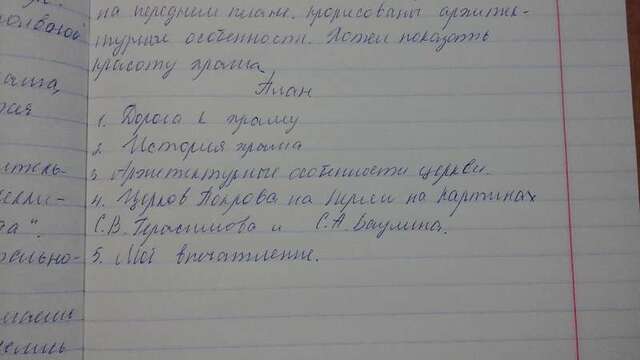 на переднем плане. Прорисованы архитек-
турные особенности. Хотел показать
красоту храма.
План
1. Дорога к храму
2. История храма
3. Архитектурные особенности церкви.
4. Церков Покрова на Нерли на картинах
С.В. Герасимова и С.А. Баулина.
5. Моё впечатление.